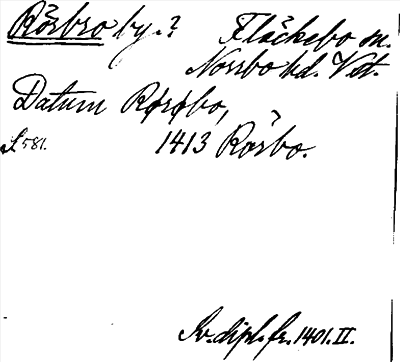 Rörbro by.? Fläckebo sn.
Norrbo hd. Vst.
Datum Rørøbo,
S 581. 1413 Rörbo.
Sv. dipl. fr. 1401. II.